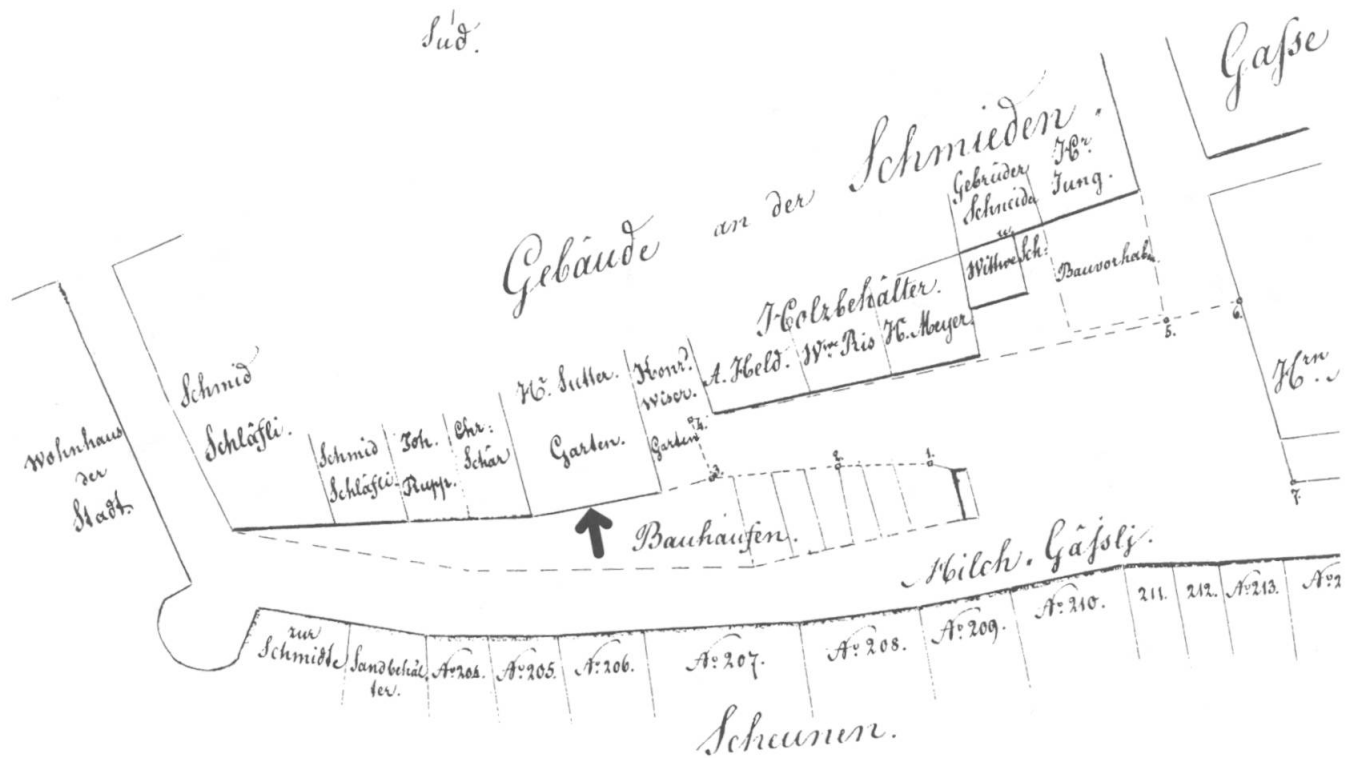 Süd.
Gasse
Gebäude an der Schmieden.
Gebrüder
Schneider
u.
Wittwe Sch:
Hr.
Jung.
Bauvorhab.
Holzbehälter.
A. Held.
Wwe Ris
H. Meyer.
5.
6.
Hrn
7.
Schmid
Schläfli.
Schmid
Schläfli.
Joh.
Rupp.
Chr:
Schär
Hr. Sutter.
Garten.
Konrd.
Wiser.
Garten
4.
3.
2.
1.
Wohnhaus
der
Stadt.
Bauhaufen.
Milch-Gässlj.
zur
Schmidte
Sandbehäl
ter.
No 204.
No 205.
No 206.
No 207.
No 208.
No 209.
No 210.
211.
212.
No 213.
No 2
Scheunen.